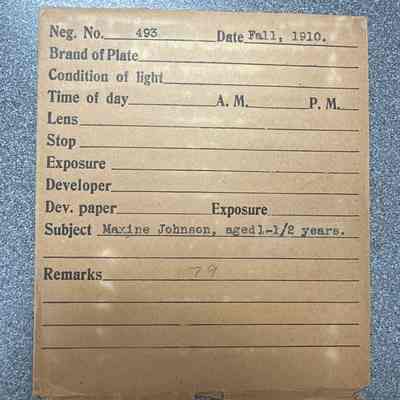 Neg. No. 493 Date Fall, 1910.
Brand of Plate
Condition of light
Time of day A. M. P. M.
Lens
Stop
Exposure
Developer
Dev. paper Exposure
Subject Maxine Johnson, aged 1-1/2 years.
Remarks 79